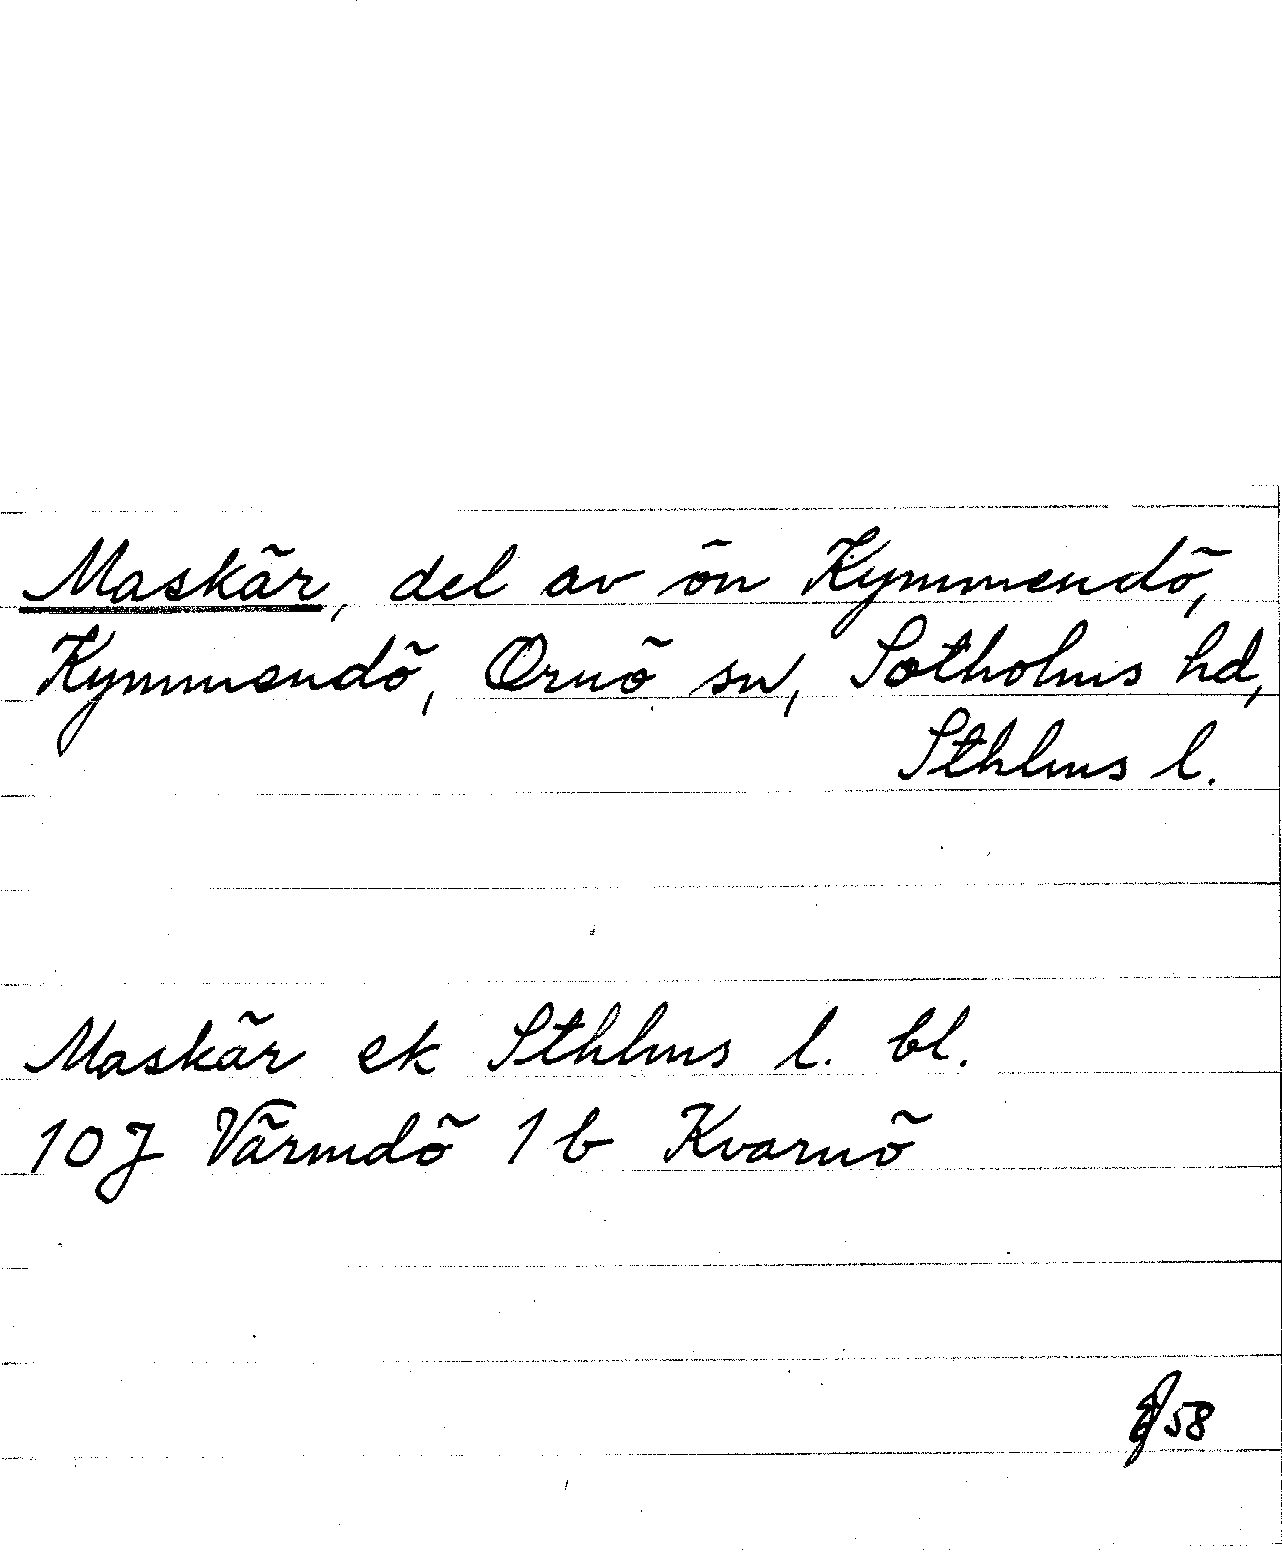 Maskär, del av ön Kymmendö,
Kymmendö, Ornö sn, Sotholms hd,
Sthlms l.
Maskär ek Sthlms l. bl.
10J Värmdö 1b Kvarnö
58